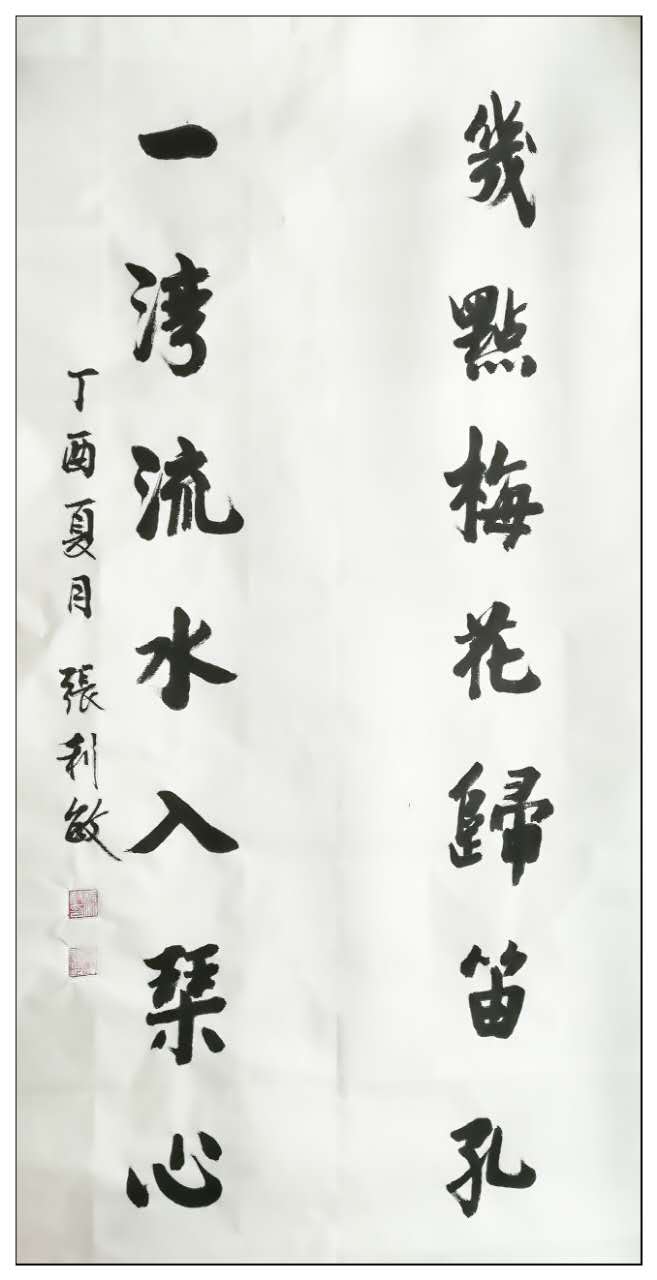 幾點梅花歸笛孔
一湾流水入琹心
丁酉夏月 張利敏